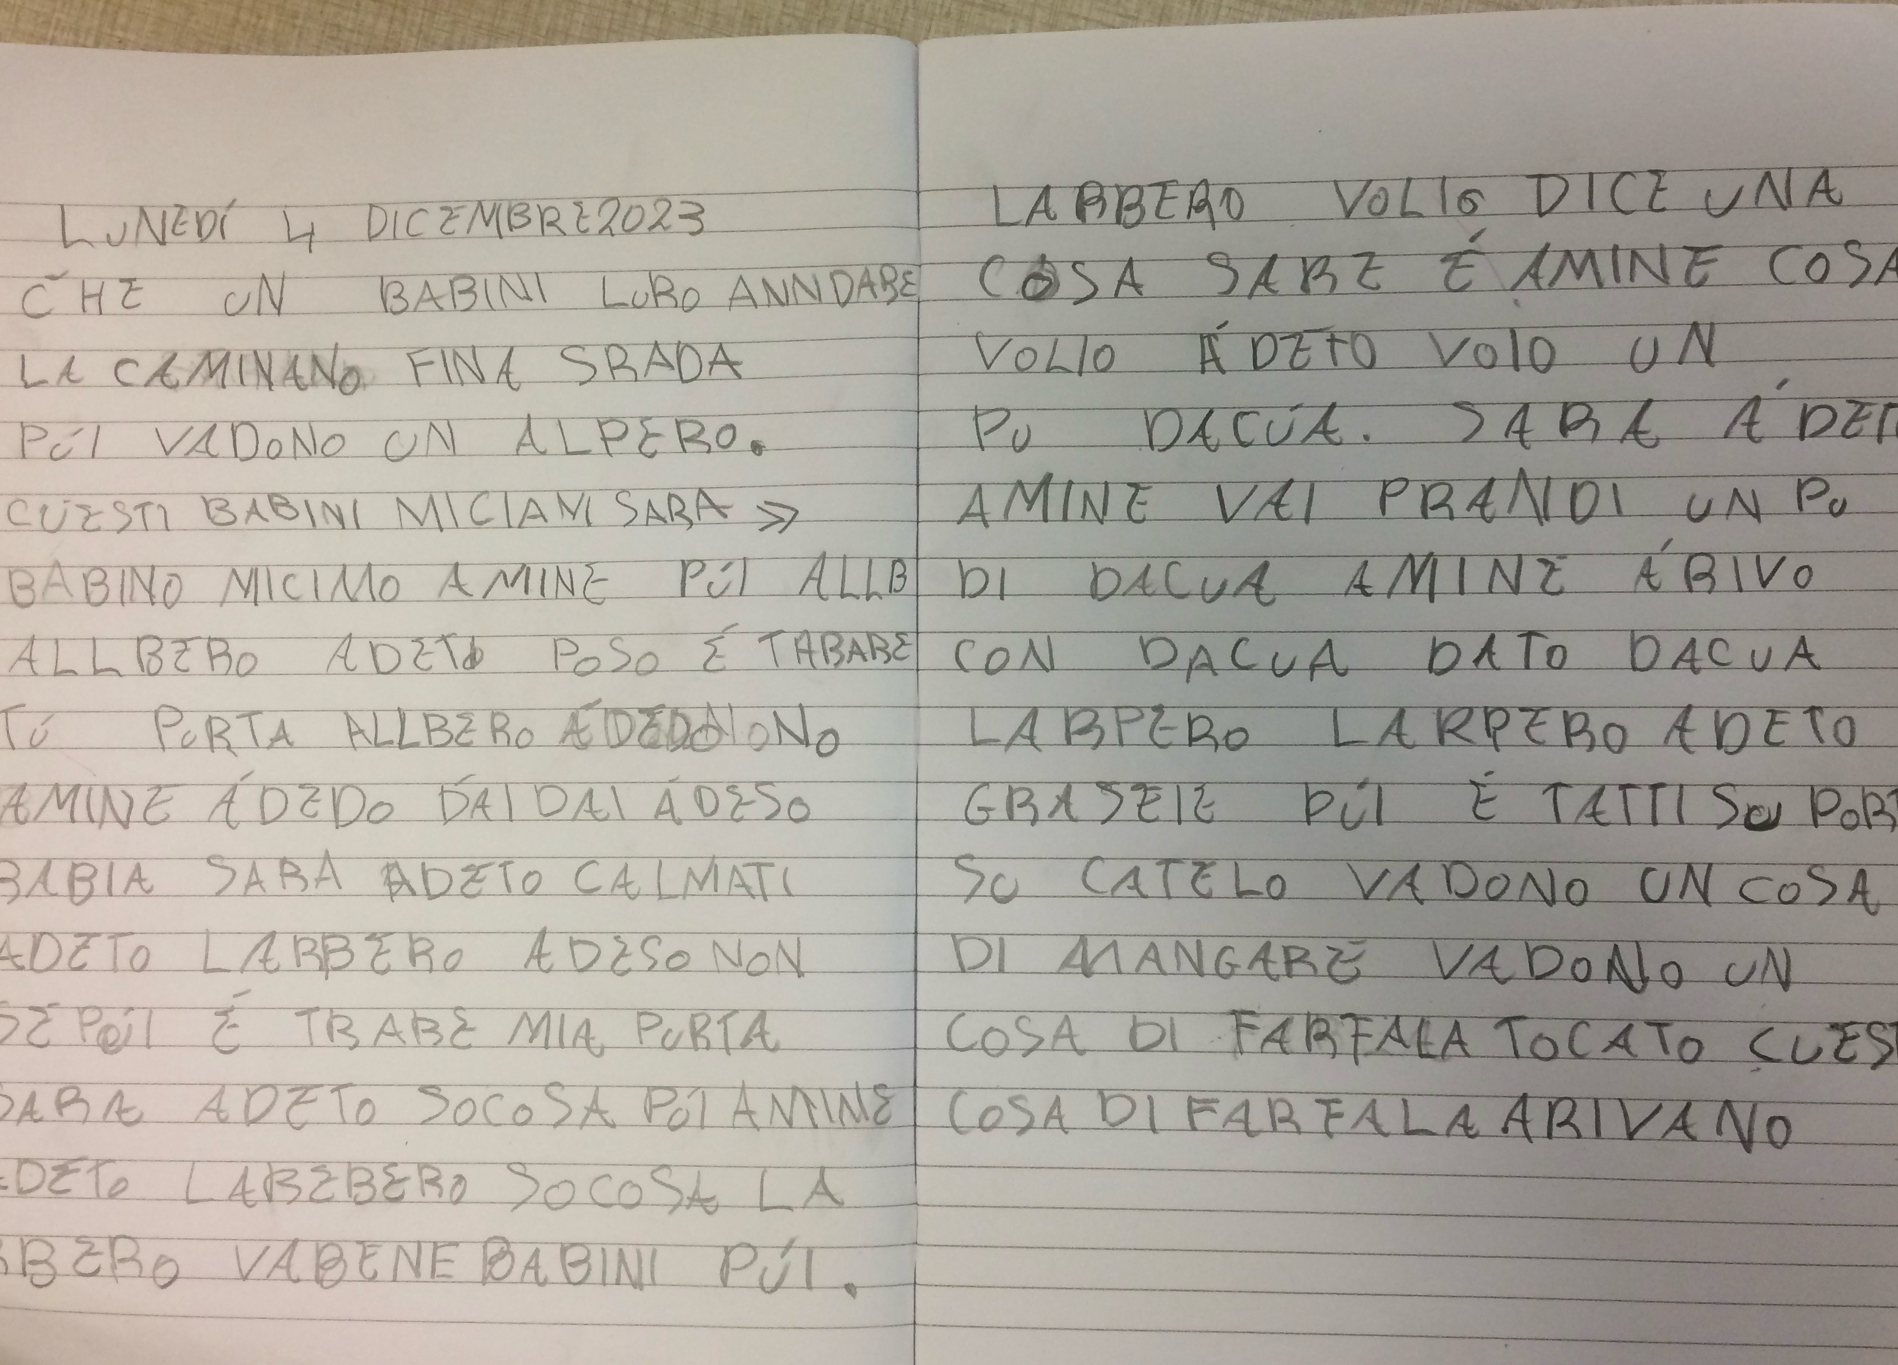 LUNEDÍ 4 DICEMBRE 2023
CHE UN BABINI LORO ANNDARE
LA CAMINANO FINA SRADA
PÚI VADONO UN ALPERO.
CUESTI BABINI MICIANI SARA »
BABINO MICIMO AMINE PÚI ALLB
ALLBERO ADETO POSO É TABARE
TÚ PORTA ALLBERO
AMINE ÁDEDO DAI DAI ÁDESO
BABIA SARA ADETO CALMATI
ADETO LARBERO ADESO NON
É TRARE MIA PORTA
SARA ADETO SOCOSA PÚI AMINE
ADETO LABEBERO SOCOSA LA
BBERO VABENE BABINI PÚI.
LABBERO VOLIO DICE UNA
COSA SARE É AMINE COSA
VOLIO ÁDETO VOIO UN
PU DACÚA. SARA ÁDET
AMINE VAI PRANDI UN PU
DI DACUA AMINE ÁRIVO
CON DACUA DATO DACUA
LARPERO LARPERO ADETO
GRASEIE PÚI É TATTI SU PORT
SU CATELO VADONO UN COSA
DI MANGARE VADONO UN
COSA DI FARFALA TOCATO CUES
COSA DI FARFALA ARIVANO